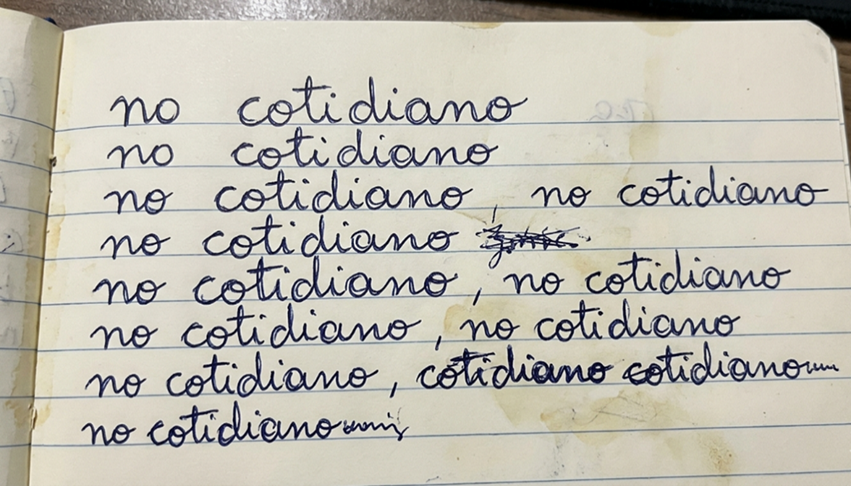 no cotidiano
no cotidiano
no cotidiano, no cotidiano
no cotidiano
no cotidiano, no cotidiano
no cotidiano, no cotidiano
no cotidiano, cotidiano cotidiano
no cotidiano